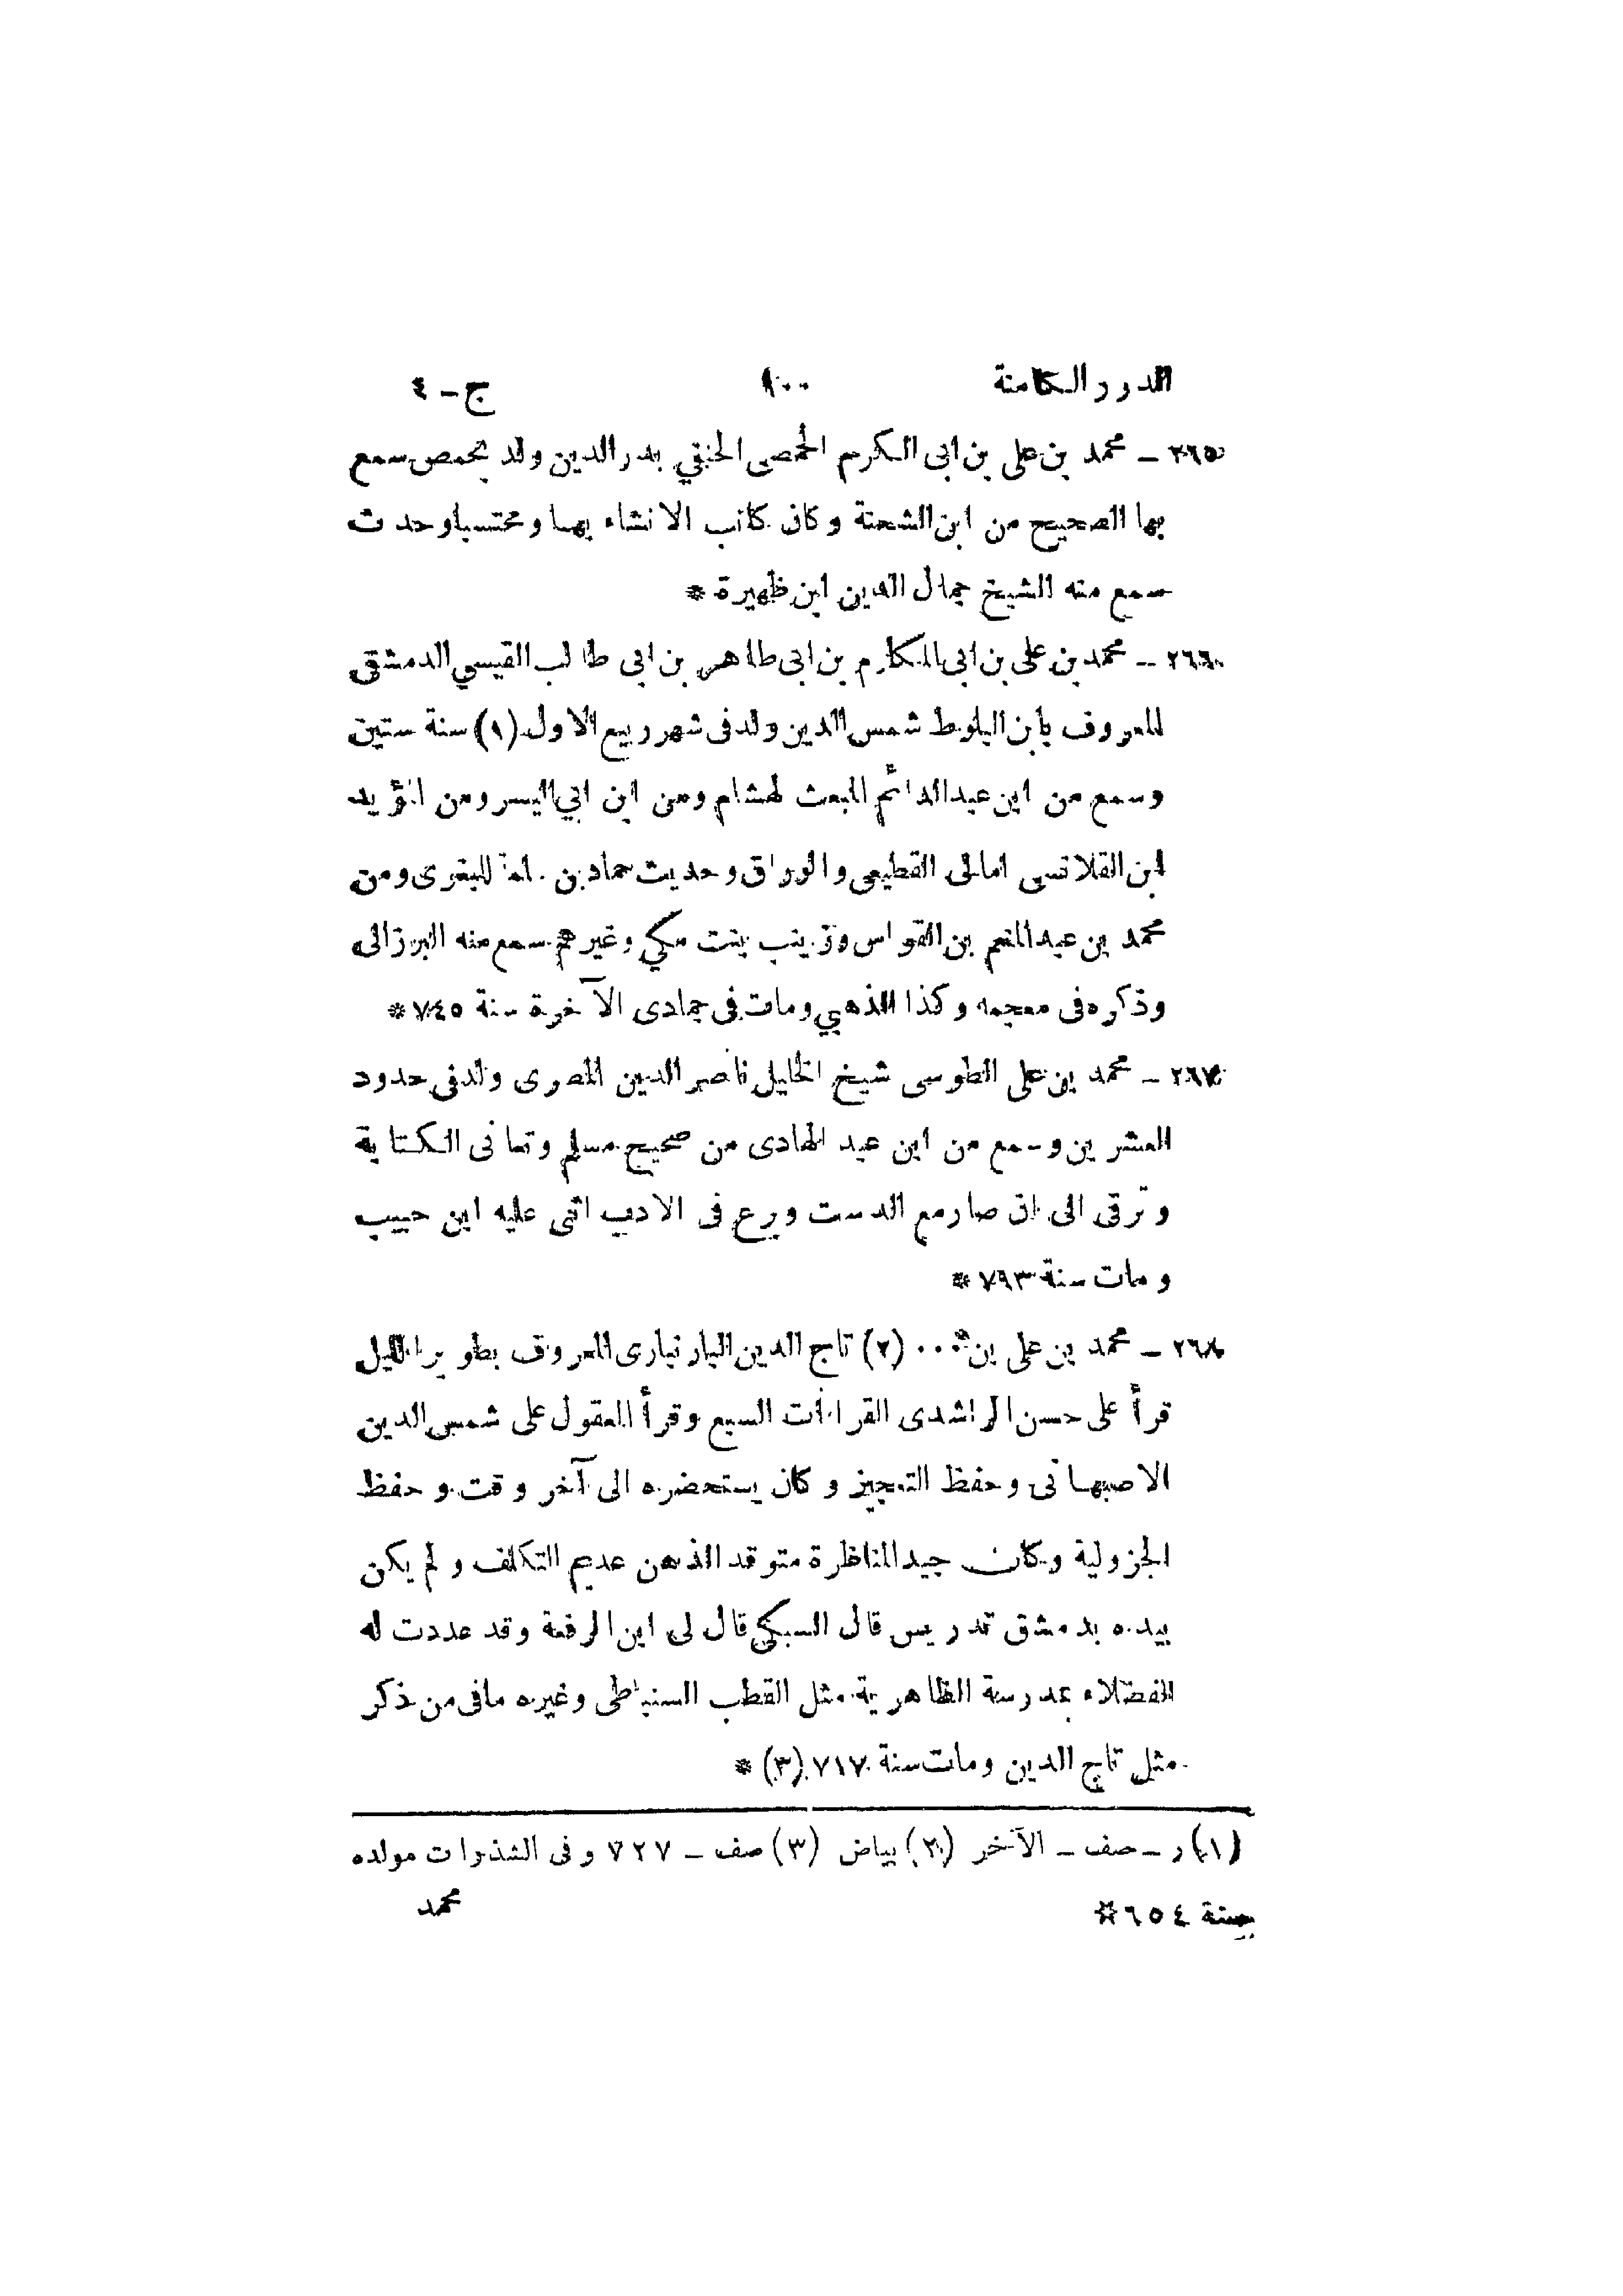 الدرر الكامنة ١٠٠ ج - ٤
٢٦٥ - محمد بن على بن ابى الكرم الحمصى الحنفي بدر الدين ولد بحمص سمع
بها الصحيح من ابن الشحنة وكان كاتب الانشاء بها ومحتسبا وحدث
سمع منه الشيخ جمال الدين ابن ظهيرة *
٢٦٦ - محمد بن على بن ابى المكارم بن ابى طاهر بن ابى طالب القيسي الدمشقى
المعروف بابن البلوط شمس الدين ولد فى شهر ربيع الاول (١) سنة ستين
وسمع من ابن عبد الدائم المبعث لهشام ومن ابن ابي اليسر ومن المؤيد
ابن القلانسى امالى القطيعى والوراق وحديث حماد بن للبغوى ومن
محمد بن عبد المنعم بن القواس وزينب بنت مكي وغيرهم سمع منه البرزالى
وذكره فى معجمه وكذا الذهبي ومات فى جمادى الآخرة سنة ٧٤٥ *
٢٦٧ - محمد بن على الطوسى شيخ الخليل ناصر الدين المصرى ولد فى حدود
العشرين وسمع من ابن عبد الهادى من صحيح مسلم وتعانى الكتابة
وترقى الى ان صار مع الدست وبرع فى الادب اثنى عليه ابن حبيب
ومات سنة ٧٩٣ *
٢٦٨ - محمد بن على بن ... (٢) تاج الدين البارنبارى المعروف بطوير الليل
قرأ على حسن الراشدى القراآت السبع وقرأ المعقول على شمس الدين
الاصبهانى وحفظ التعجيز وكان يستحضره الى آخر وقت وحفظ
الجزولية وكان جيد المناظرة متوقد الذهن عديم التكلف ولم يكن
بيده بدمشق تدريس قال السبكي قال لى ابن الرفعة وقد عددت له
الفضلاء بمدرسة الظاهرية مثل القطب السنباطى وغيره ما فى من ذكر
مثل تاج الدين ومات سنة ٧١٧ (٣) *
(١) ر - صف - الآخر (٢) بياض (٣) صف - ٧٢٧ وفى الشذرات مولده
سنة ٦٥٤ *
محمد